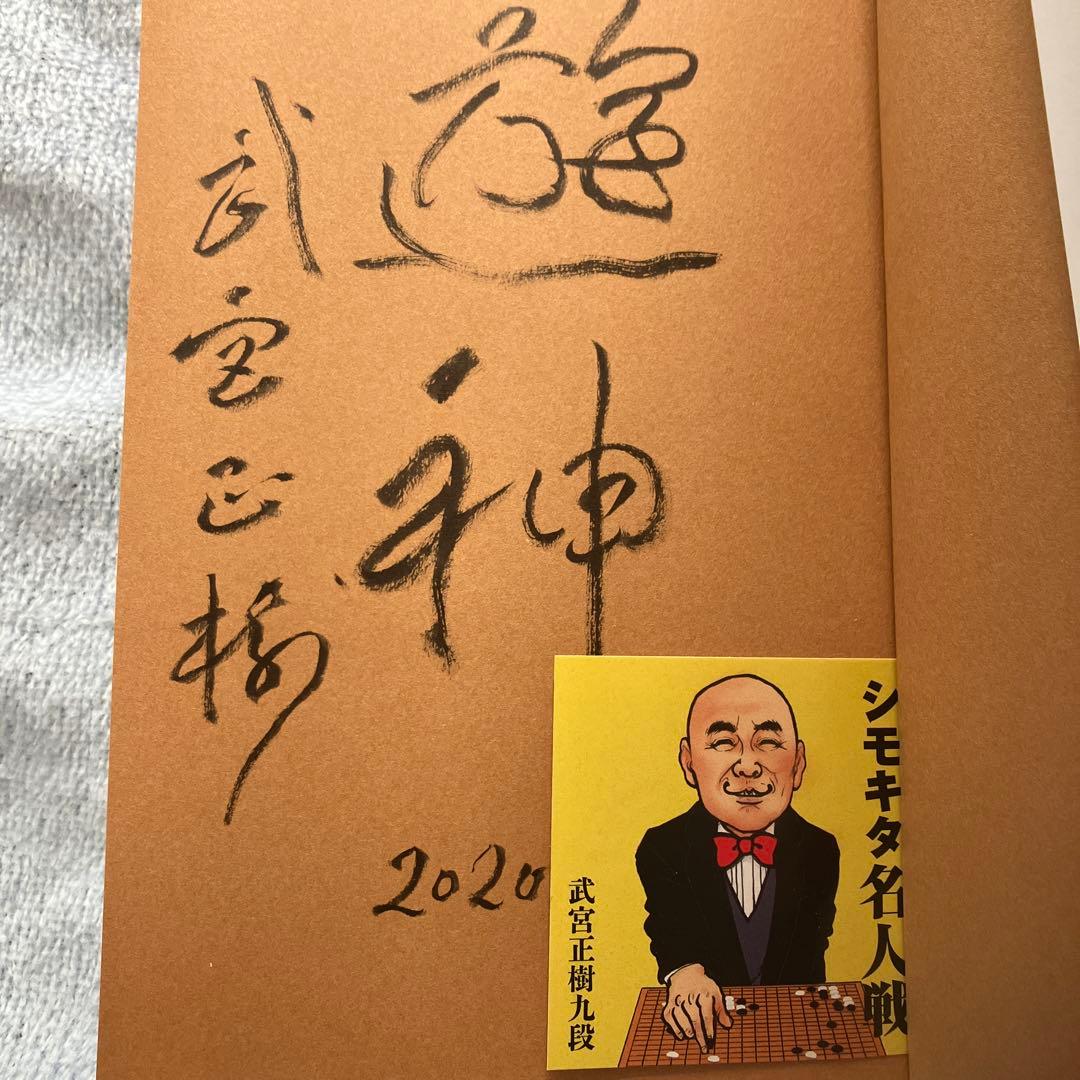 遊神
武宮正樹
2020
シモキタ名人戦
武宮正樹九段